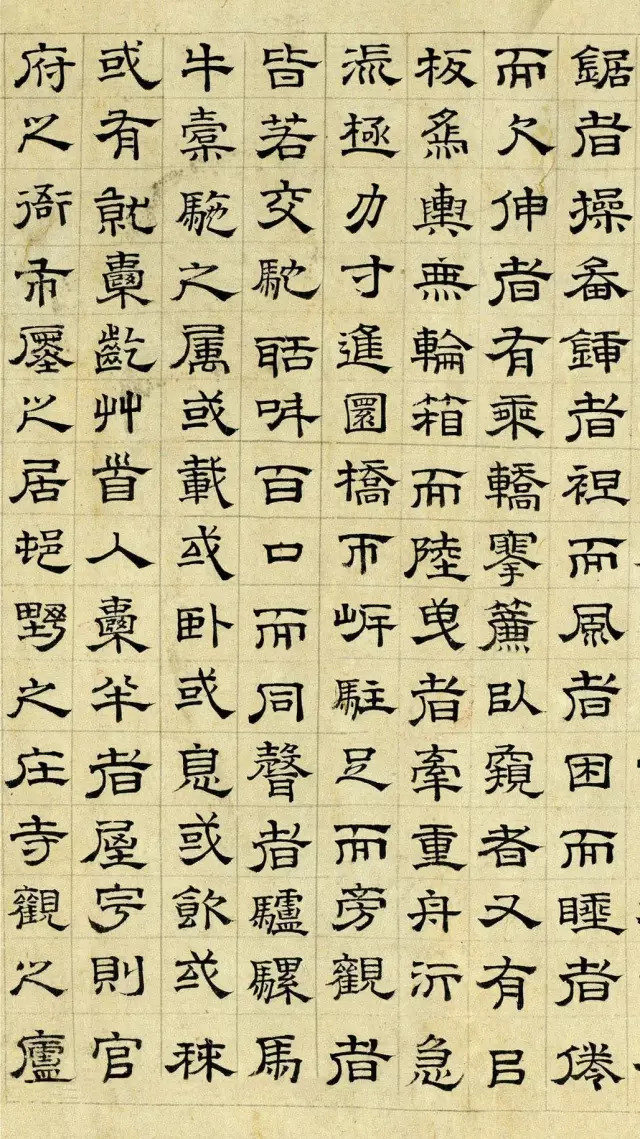 鋸者操畚鍤者袒而風者困而睡者倦
而欠伸者有乘轎搴簾以窺者又有以
板為輿無輪箱而陸曳者牽重舟泝急
流極力寸進圜橋匝岸駐足而旁觀者
皆若交馳聒呶百口而同聲者驢騾馬
牛橐駞之属或載或臥或息或飲或秣
或有就橐齕艸首入橐半者屋宇則官
府之衙市廛之居邨野之庄寺觀之廬